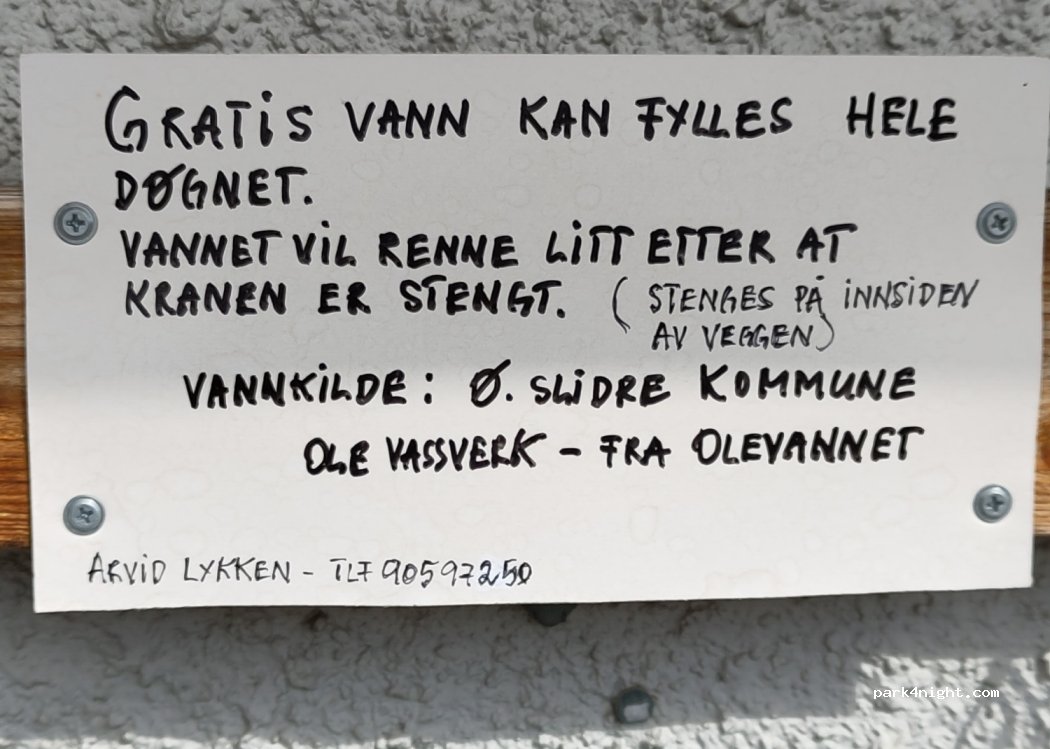 GRATIS VANN KAN FYLLES HELE
DØGNET.
VANNET VIL RENNE LITT ETTER AT
KRANEN ER STENGT. ( STENGES PÅ INNSIDEN
AV VEGGEN)
VANNKILDE: Ø. SLIDRE KOMMUNE
OLE VASSVERK - FRA OLEVANNET
ARVID LYKKEN - TLF 90597250
park4night.com